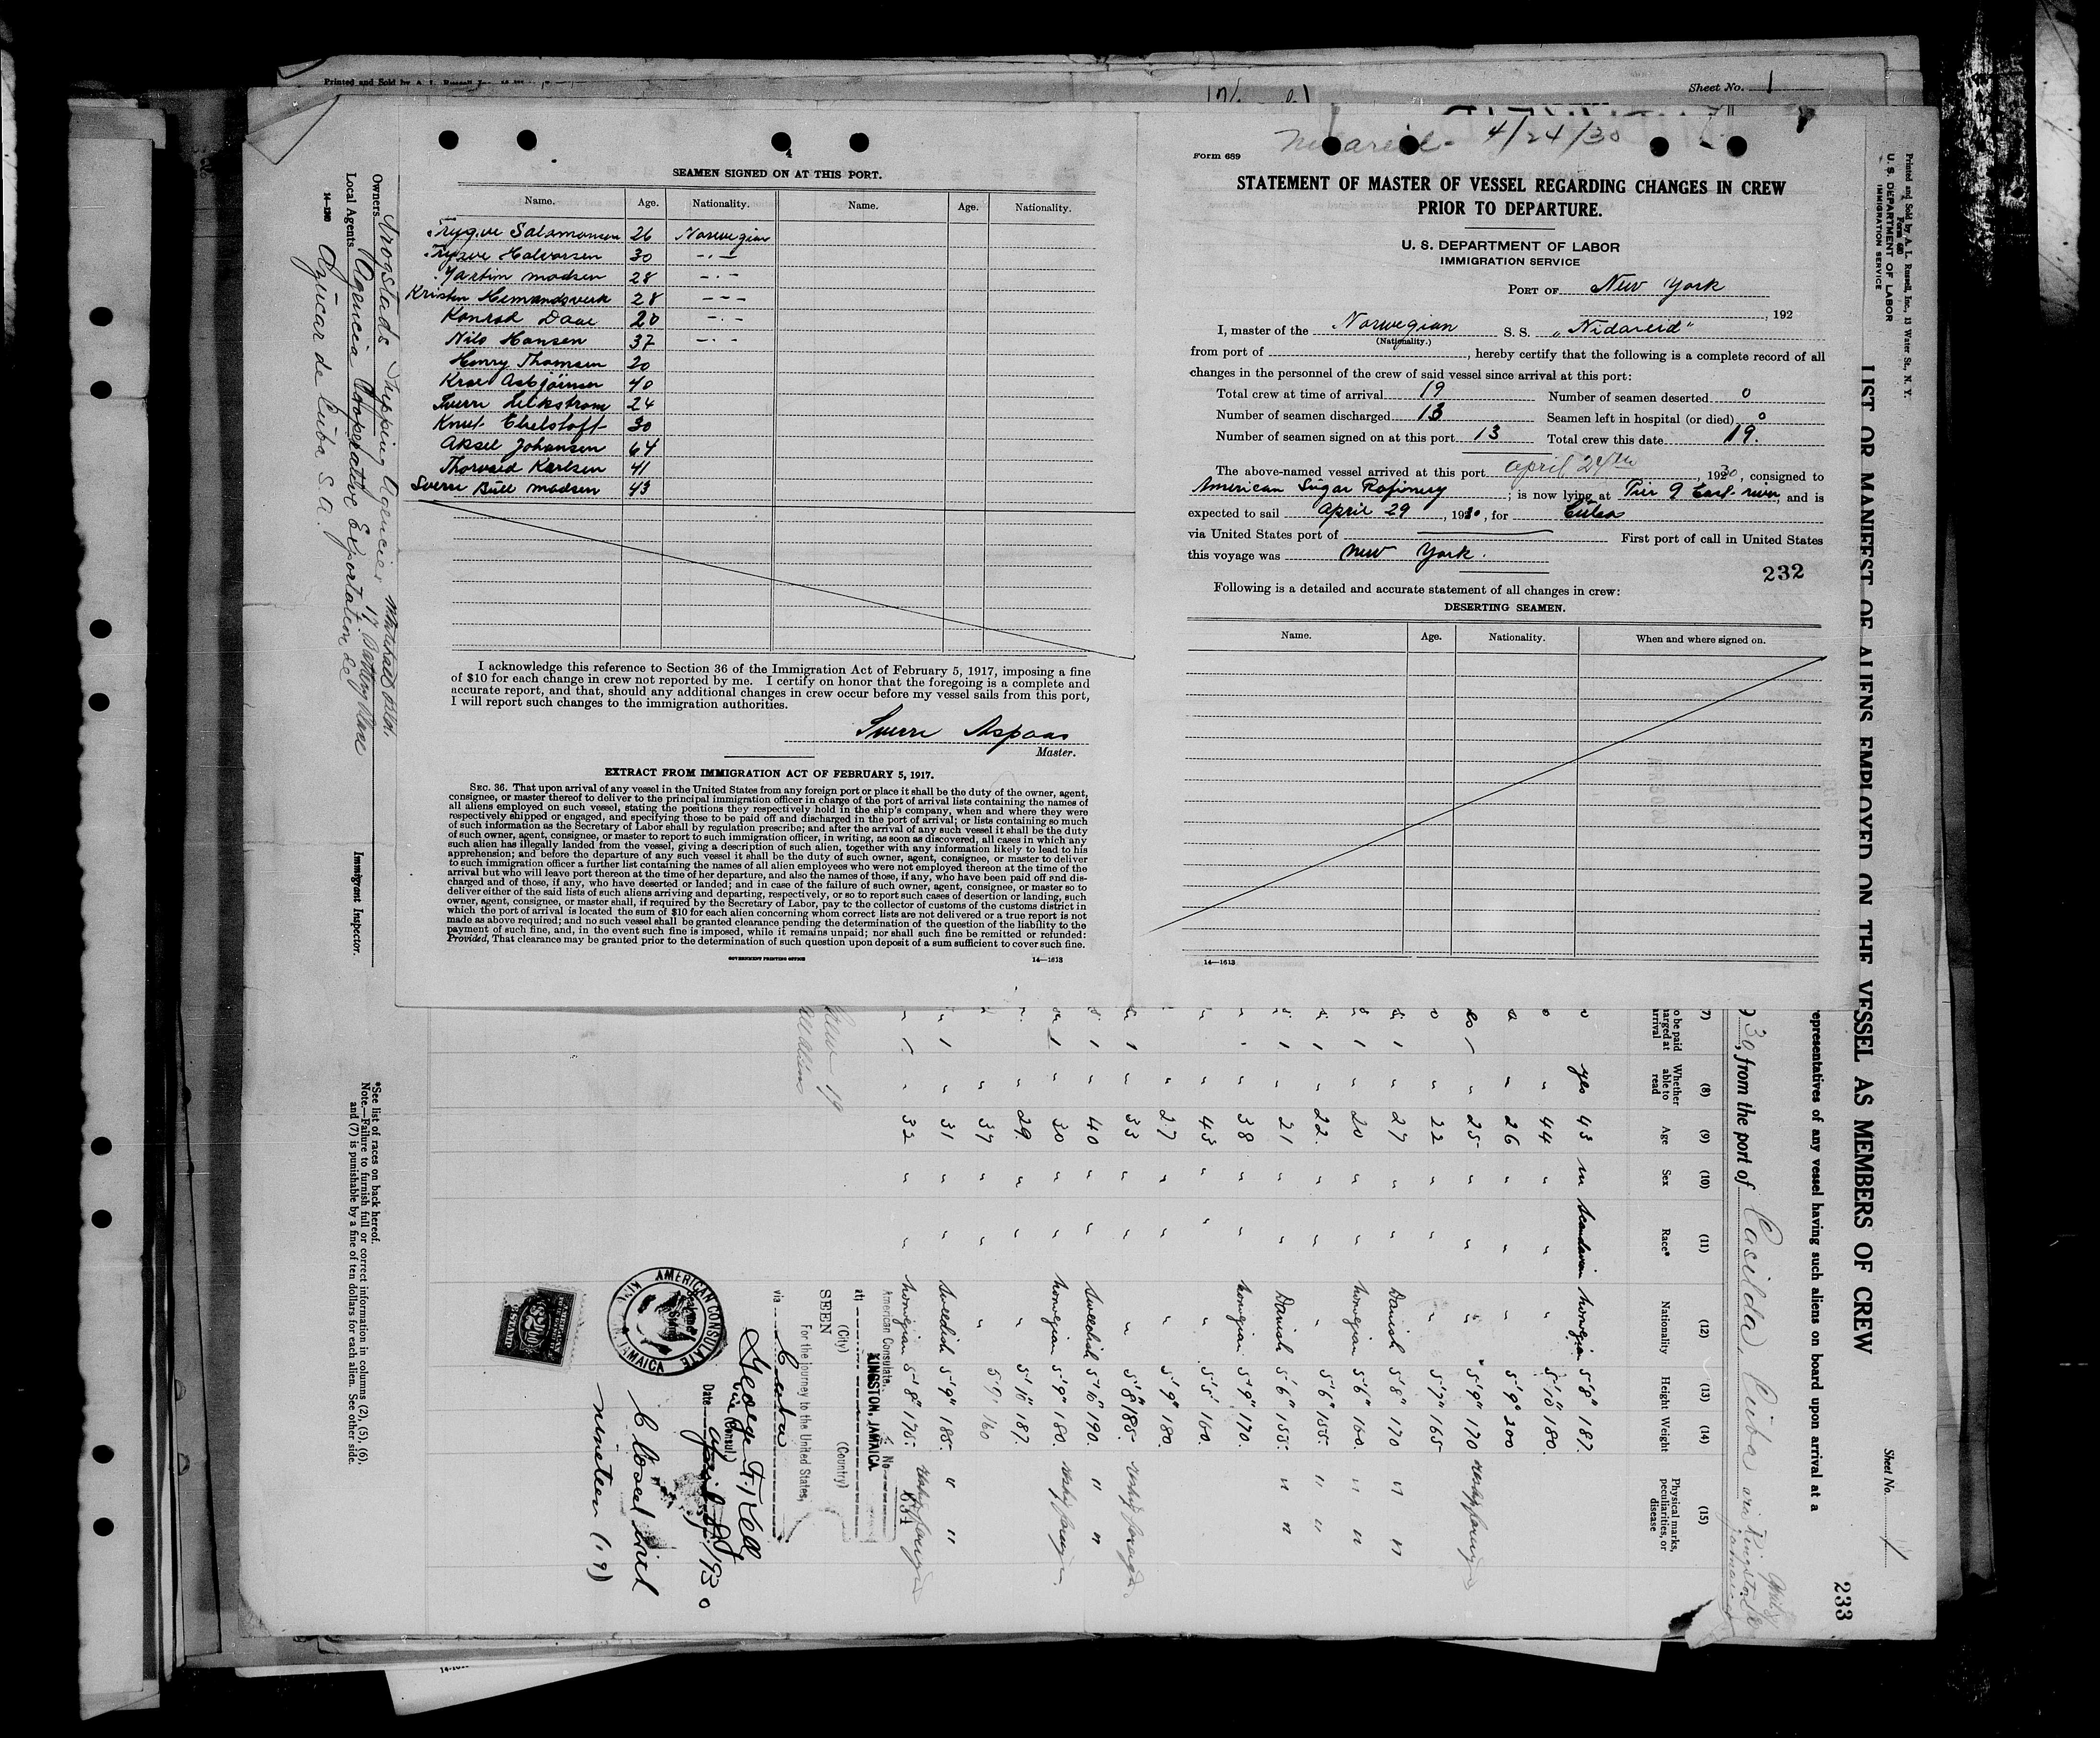 Printed and Sold by A. L. Russell, Inc.
Sheet No. 1
4
SEAMEN SIGNED ON AT THIS PORT.
Name. Age. Nationality. Name. Age. Nationality.
Trygve Salomonsen 26 Norwegian
Trygve Halvorsen 30 -·-
Martin Madsen 28 -·-
Kristen 28 ---
Konrad Daae 20 -·-
Nils Hansen 37 -·-
Henry Thomsen 20
Asbjörnsen 40
Sverre 24
Knut 30
Aksel Johansen 64
Thorvald Karlsen 41
Sverre Bull Madsen 43
I acknowledge this reference to Section 36 of the Immigration Act of February 5, 1917, imposing a fine
of $10 for each change in crew not reported by me. I certify on honor that the foregoing is a complete and
accurate report, and that, should any additional changes in crew occur before my vessel sails from this port,
I will report such changes to the immigration authorities.
Sverre Aspaas
Master.
EXTRACT FROM IMMIGRATION ACT OF FEBRUARY 5, 1917.
SEC. 36. That upon arrival of any vessel in the United States from any foreign port or place it shall be the duty of the owner, agent,
consignee, or master thereof to deliver to the principal immigration officer in charge of the port of arrival lists containing the names of
all aliens employed on such vessel, stating the positions they respectively hold in the ship's company, when and where they were
respectively shipped or engaged, and specifying those to be paid off and discharged in the port of arrival; or lists containing so much
of such information as the Secretary of Labor shall by regulation prescribe; and after the arrival of any such vessel it shall be the duty
of such owner, agent, consignee, or master to report to such immigration officer, in writing, as soon as discovered, all cases in which any
such alien has illegally landed from the vessel, giving a description of such alien, together with any information likely to lead to his
apprehension; and before the departure of any such vessel it shall be the duty of such owner, agent, consignee, or master to deliver
to such immigration officer a further list containing the names of all alien employees who were not employed thereon at the time of the
arrival but who will leave port thereon at the time of her departure, and also the names of those, if any, who have been paid off and dis-
charged and of those, if any, who have deserted or landed; and in case of the failure of such owner, agent, consignee, or master so to
deliver either of the said lists of such aliens arriving and departing, respectively, or so to report such cases of desertion or landing, such
owner, agent, consignee, or master shall, if required by the Secretary of Labor, pay to the collector of customs of the customs district in
which the port of arrival is located the sum of $10 for each alien concerning whom correct lists are not delivered or a true report is not
made as above required; and no such vessel shall be granted clearance pending the determination of the question of the liability to the
payment of such fine, and, in the event such fine is imposed, while it remains unpaid; nor shall such fine be remitted or refunded:
Provided, That clearance may be granted prior to the determination of such question upon deposit of a sum sufficient to cover such fine.
GOVERNMENT PRINTING OFFICE 14—1613
4/24/30
Form 689
STATEMENT OF MASTER OF VESSEL REGARDING CHANGES IN CREW
PRIOR TO DEPARTURE.
U. S. DEPARTMENT OF LABOR
IMMIGRATION SERVICE
PORT OF New York
, 192
I, master of the Norwegian S. S. „Nidareid"
(Nationality.)
from port of , hereby certify that the following is a complete record of all
changes in the personnel of the crew of said vessel since arrival at this port:
Total crew at time of arrival 19 Number of seamen deserted 0
Number of seamen discharged 13 Seamen left in hospital (or died) 0
Number of seamen signed on at this port 13 Total crew this date 19.
The above-named vessel arrived at this port April 24th, 1930, consigned to
American Sugar Refinery ; is now lying at Pier 9 East river, and is
expected to sail April 29, 1930, for Cuba
via United States port of First port of call in United States
this voyage was New York.
232
Following is a detailed and accurate statement of all changes in crew:
DESERTING SEAMEN.
Name. Age. Nationality. When and where signed on.
14—1613
Printed and Sold by A. L. Russell, Inc., 13 Water St., N. Y.
Form 680
U. S. DEPARTMENT OF LABOR
IMMIGRATION SERVICE
Sheet No. 1
233
LIST OR MANIFEST OF ALIENS EMPLOYED ON THE VESSEL AS MEMBERS OF CREW
epresentatives of any vessel having such aliens on board upon arrival at a
30, from the port of Casilda, Cuba via Kingston Jamaica
7) (8) (9) (10) (11) (12) (13) (14) (15)
o be paid
arged at
arrival
Whether
able to
read
Age Sex Race* Nationality Height Weight
Physical marks,
peculiarities, or
disease
yes 43 m Scandavian Norwegian 5'8" 187
" 44 " " " 5'10" 180.
" 26 " " " 5'9" 200
" 25 " " " 5'9" 170
" 22 " " " 5'7" 165
1 " 27 " " Danish 5'8" 170 "
1 " 20 " " Norwegian 5'6" 160. "
1 " 22. " " " 5'6" 155 "
1 " 21 " " Danish 5'6" 155. "
" 38 " " Norwegian 5'9" 170.
" 43 " " " 5'5" 160.
" 27 " " " 5'9" 180.
1 " 33 " " " 5'8" 185
1 " 40 " " Swedish 5'10" 190. "
1 " 30 " " Norwegian 5'9" 180.
" 29. " " " 5'10" 187.
" 37 " " " 5'9" 160
1 " 31 " " Swedish 5'9" 185. "
" 32 " " Norwegian 5'8" 175.
American Consulate, No 631
KINGSTON, JAMAICA.
at
(City) (Country)
SEEN
For the journey to the United States,
via Cuba
(Vice Consul.)
Date April 1930
AMERICAN CONSULATE
KINGSTON JAMAICA
Closed with
nineteen (19)
Owners Shipping Agencies
Local Agents Agencia Cooperative Exportation de
Azucar de Cuba S. A. 17 Battery Place
14—1240
Immigrant Inspector.
*See list of races on back hereof.
Note.—Failure to furnish full or correct information in columns (2), (5), (6),
and (7) is punishable by a fine of ten dollars for each alien. See other side.